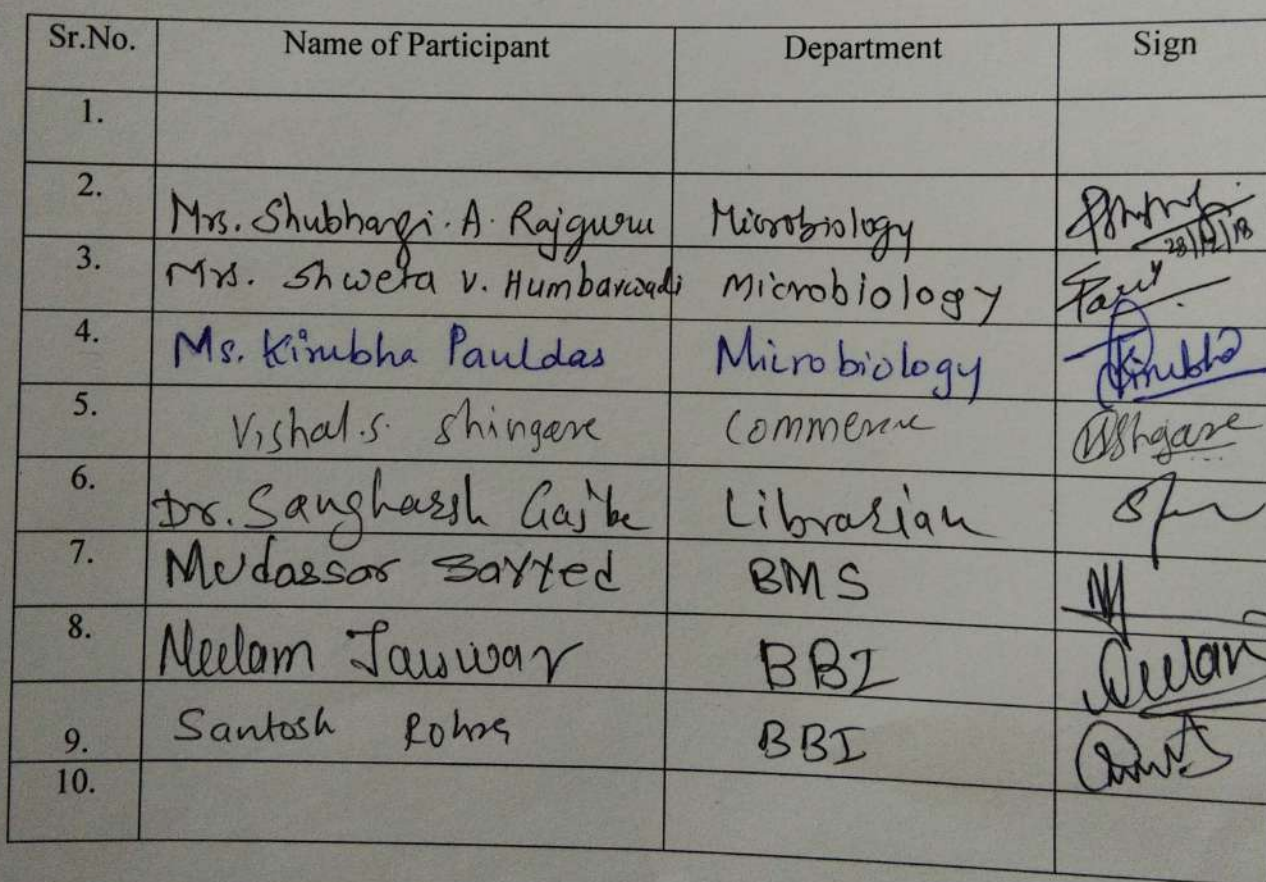 Sr.No. Name of Participant Department Sign
1.
2. Mrs. Shubhangi. A. Rajguru Microbiology
3. Mrs. Shweta V. Humbarwadi Microbiology
4. Ms. Kirubha Pauldas Microbiology Kirubha
5. Vishal.S. Shingare Commerce
6. Dr. Sangharsh Gajbe Librarian
7. Mudassar Sayyed BMS
8. Neelam Jaiswar BBI Neelam
9. Santosh BBI
10.